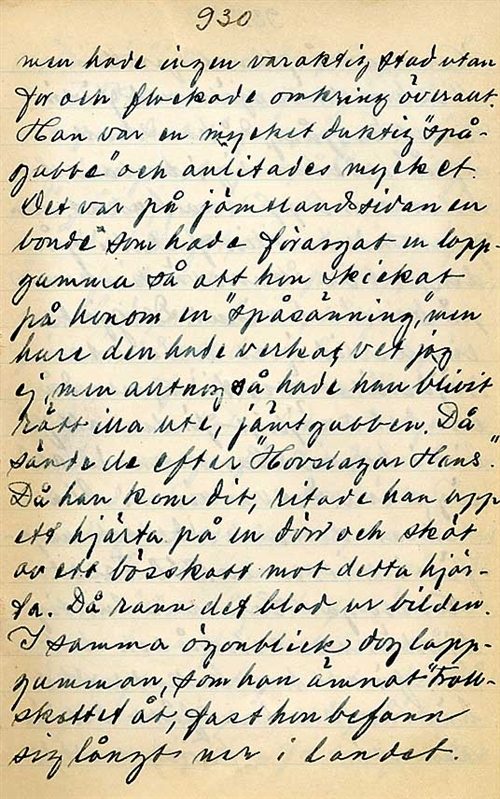 930
men hade ingen varaktig stad utan
for och flackade omkring överallt
Han var en mycket duktig "spå-
gubbe" och anlitades mycket.
Det var på jämtlandssidan en
bonde som hade förargat en lapp-
gumma så att hon skickat
på honom en "spåsänning," men
huru den hade verkat vet jag
ej, men allt nog så hade han blivit
rätt illa ute, jämtgubben. Då
sände de efter "Hovslagar Hans".
Då han kom dit, ritade han upp
ett hjärta på en dörr och sköt
av ett bösskott mot detta hjär-
ta. Då rann det blod ur bilden.
I samma ögonblick dog lapp-
gumman, som han ämnat "Troll-
skottet åt, fast hon befann
sig långt ner i landet.